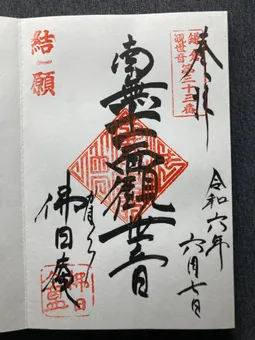 奉拝
鎌倉
観世音
第三十三番
令和六年
六月七日
南無十一面観世音
佛日庵
結願